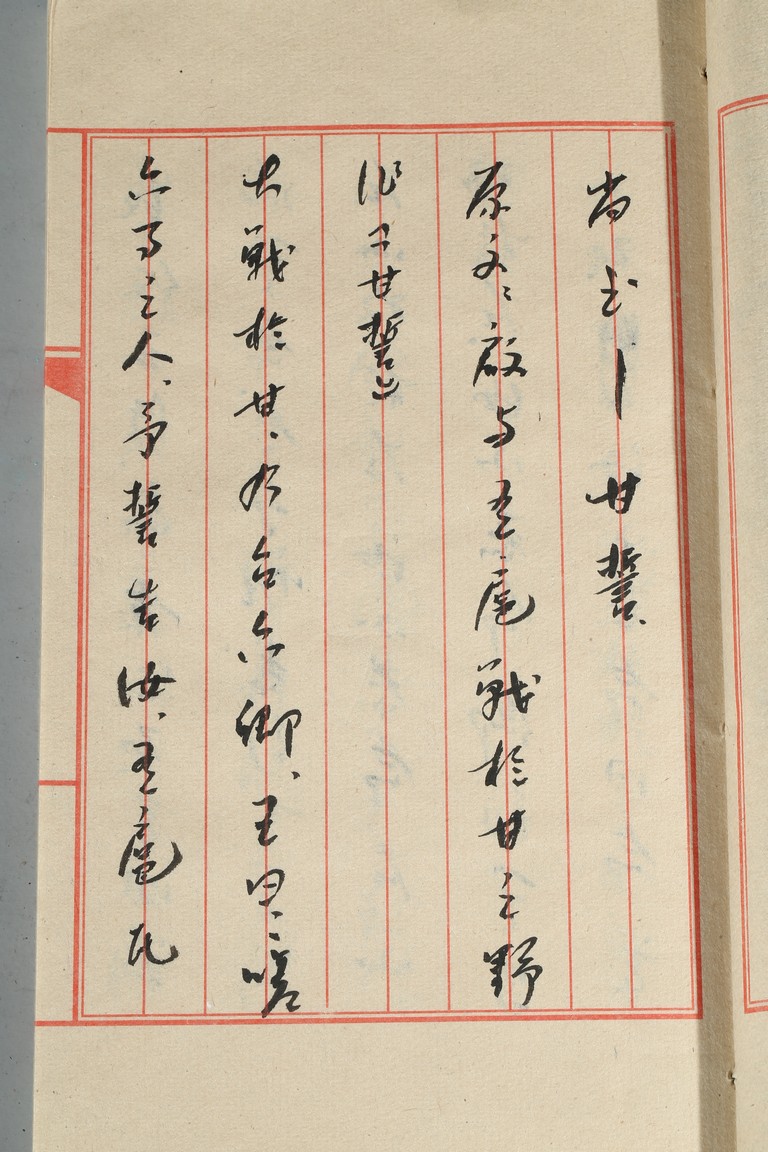 尚书—甘誓、
原文：啟与有扈戰於甘之野
作「甘誓」
大戰於甘、乃召六卿、王曰：嗟
六事之人、予誓告汝、有扈氏